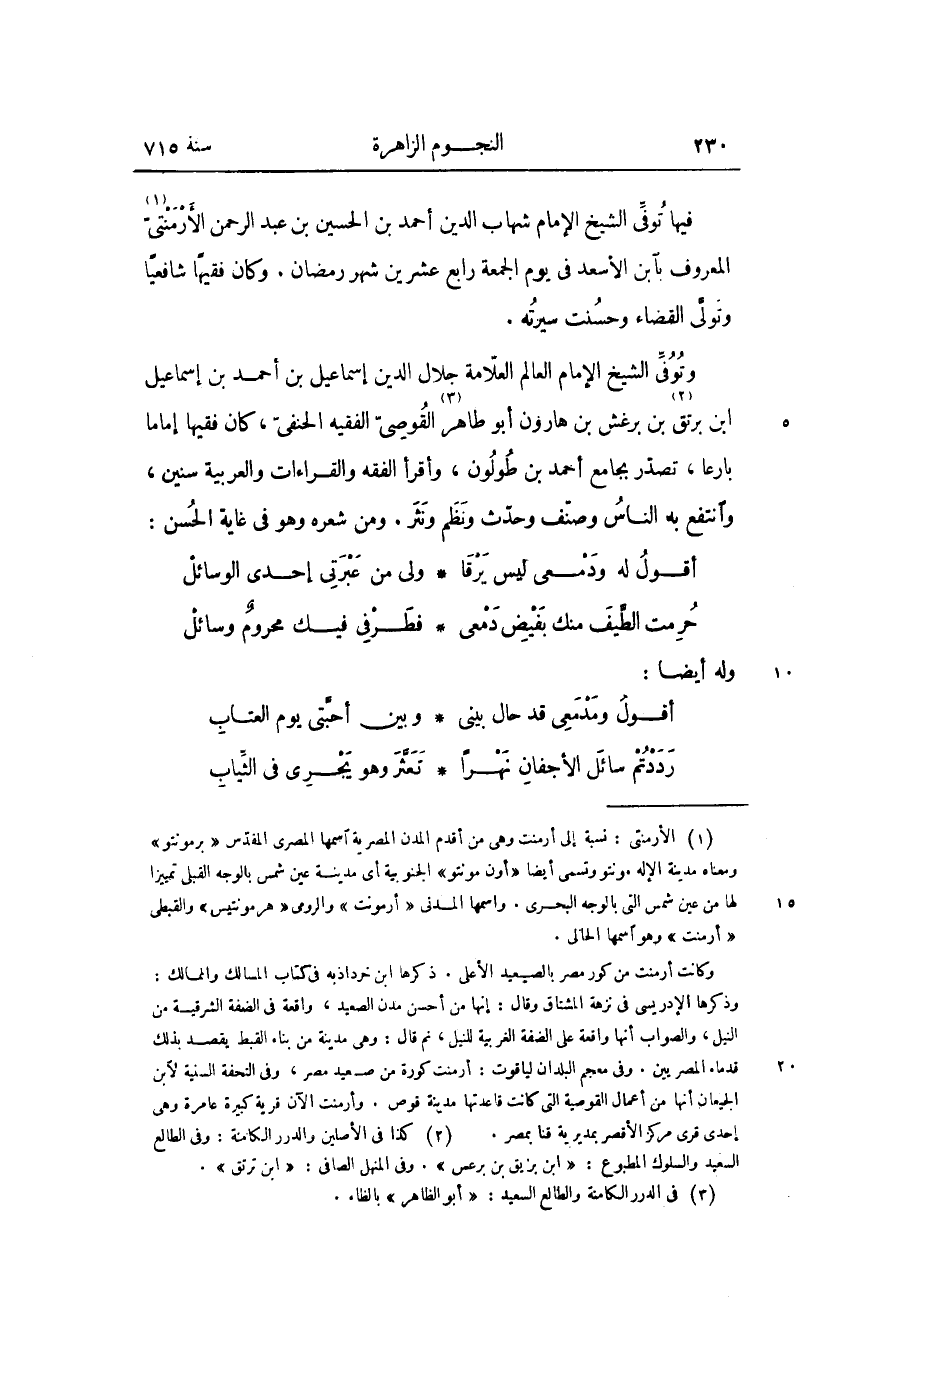 ٢٣٠ النجـوم الزاهرة سنة ٧١٥
فيها تُوفِّى الشيخ الإمام شهاب الدين أحمد بن الحسين بن عبد الرحمن الأَرْمَنْتىّ (١)
المعروف بآبن الأسعد فى يوم الجمعة رابع عشرين شهر رمضان . وكان فقيهًا شافعيًّا
وتَولَّى القضاء وحسُنت سيرتُه .
وتُوُفِّى الشيخ الإمام العالم العلّامة جلال الدين إسماعيل بن أحمـد بن إسماعيل
٥ ابن برتق (٢) بن برغش بن هارون أبو طاهر (٣) القُوصِىّ الفقيه الحنفىّ ، كان فقيها إماما
بارعا ، تصدّر بجامع أحمد بن طُولُون ، وأقرأ الفقه والقـراءات والعربية سنين ،
وآنتفع به النـاسُ وصنّف وحدّث ونَظَم ونَثَر . ومن شعره وهو فى غاية الحُسن :
أقـولُ له ودَمْـعى ليس يَرْقَا * ولى من عَبْرَتِى إحـدى الوسائلْ
حُرِمت الطَّيفَ منك بفَيْضِ دَمْعى * فطَـرْفِى فيـك محرومٌ وسائلْ
١٠ وله أيضـا :
أقـولُ ومَدْمَعِى قد حال بينى * وبين أحبَّتى يوم العتـابِ
رَدَدْتُمْ سائلَ الأجفانِ نَهْـرًا * تَعَثَّرَ وهو يَجْـرِى فى الثِّيابِ
(١) الأرمنتى : نسبة إلى أرمنت وهى من أقدم المدن المصرية آسمها المصرى المقدّس « برمونتو »
ومعناه مدينة الإله مونتو وتسمى أيضا «أون مونتو» الجنوبية أى مدينـة عين شمس بالوجه القبلى تمييزا
١٥ لها من عين شمس التى بالوجه البحـرى . واسمها المـدنى « أرمونت » والرومى « هرمونتيس » والقبطى
« أرمنت » وهو آسمها الحالى .
وكانت أرمنت من كور مصر بالصـعيد الأعلى . ذكرها ابن خرداذبه فى كتاب المسالك والممالك :
وذكرها الإدريسى فى نزهة المشتاق وقال : إنها من أحسن مدن الصعيد ، واقعة فى الضفة الشرقيـة من
النيل ، والصواب أنها واقعة على الضفة الغربية للنيل ، ثم قال : وهى مدينة من بناء القبط يقصـد بذلك
٢٠ قدماء المصريين . وفى معجم البلدان لياقوت : أرمنت كورة من صـعيد مصر ، وفى التحفة السنية لآبن
الجيعان أنها من أعمال القوصية التى كانت قاعدتها مدينة قوص . وأرمنت الآن قرية كبيرة عامرة وهى
إحدى قرى مركز الأقصر بمديرية قنا بمصر . (٢) كذا فى الأصلين والدرر الكامنة : وفى الطالع
السعيد والسلوك المطبوع : « ابن بزيق بن برعس » . وفى المنهل الصافى : « ابن ترتق » .
(٣) فى الدرر الكامنة والطالع السعيد : « أبو الظاهر » بالظاء .